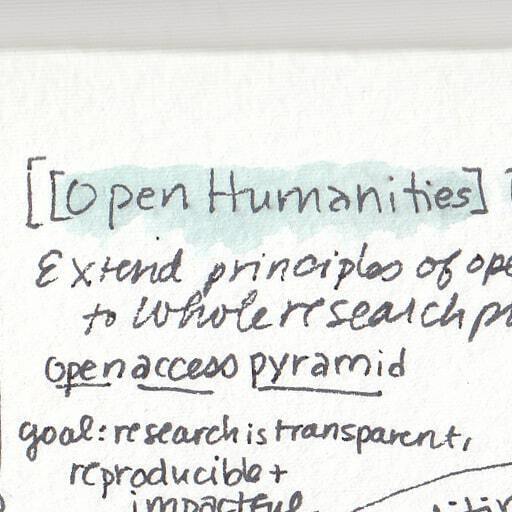 [[Open Humanities]
Extend principles of ope
to whole research pr
open access pyramid
goal: research is transparent,
reproducible +
impactful